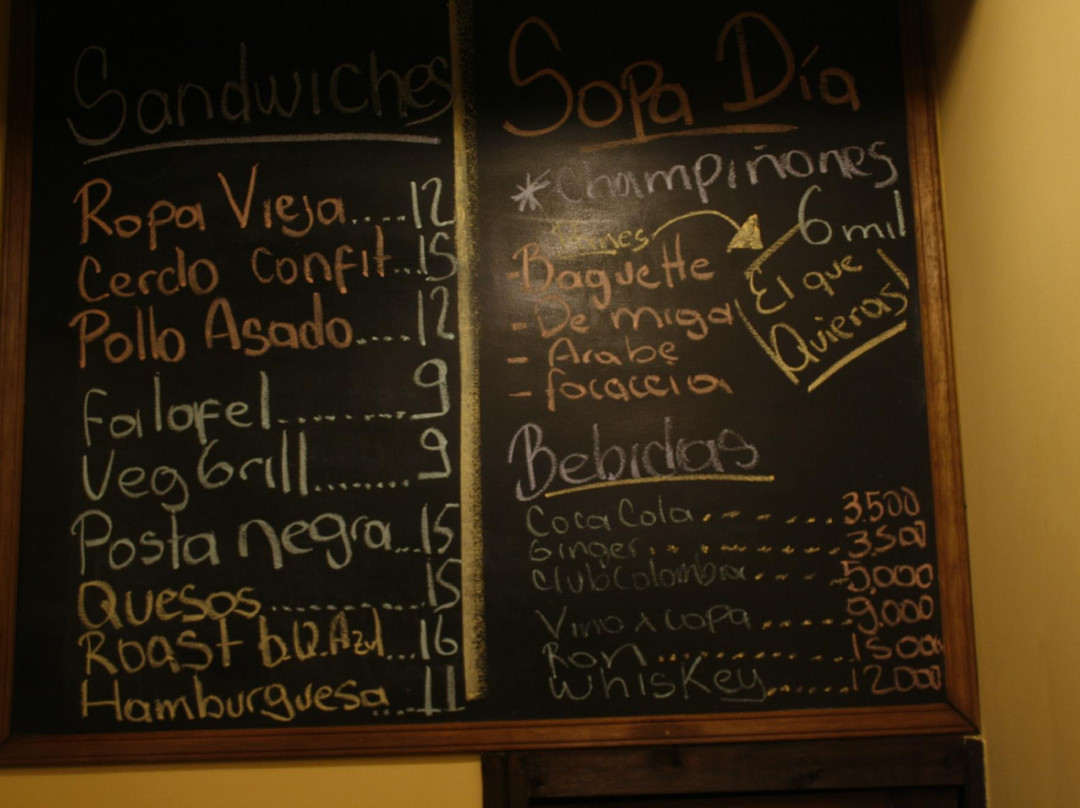 Sandwiches
Ropa Vieja....12
Cerdo Confit...15
Pollo Asado....12
Falafel.........9
Veg Grill.......9
Posta negra...15
Quesos...........15
Roast b.Q.Azul...16
Hamburguesa....11
Sopa Día
*Champiñones
6 mil
Panes
-Baguette
- De miga
- Arabe
- focaccia
El que
Quieras
Bebidas
Coca Cola.......3.500
Ginger.........3.500
Club Colombia.....5,000
Vino x copa......9.000
Ron...........15000
Whiskey.......12000